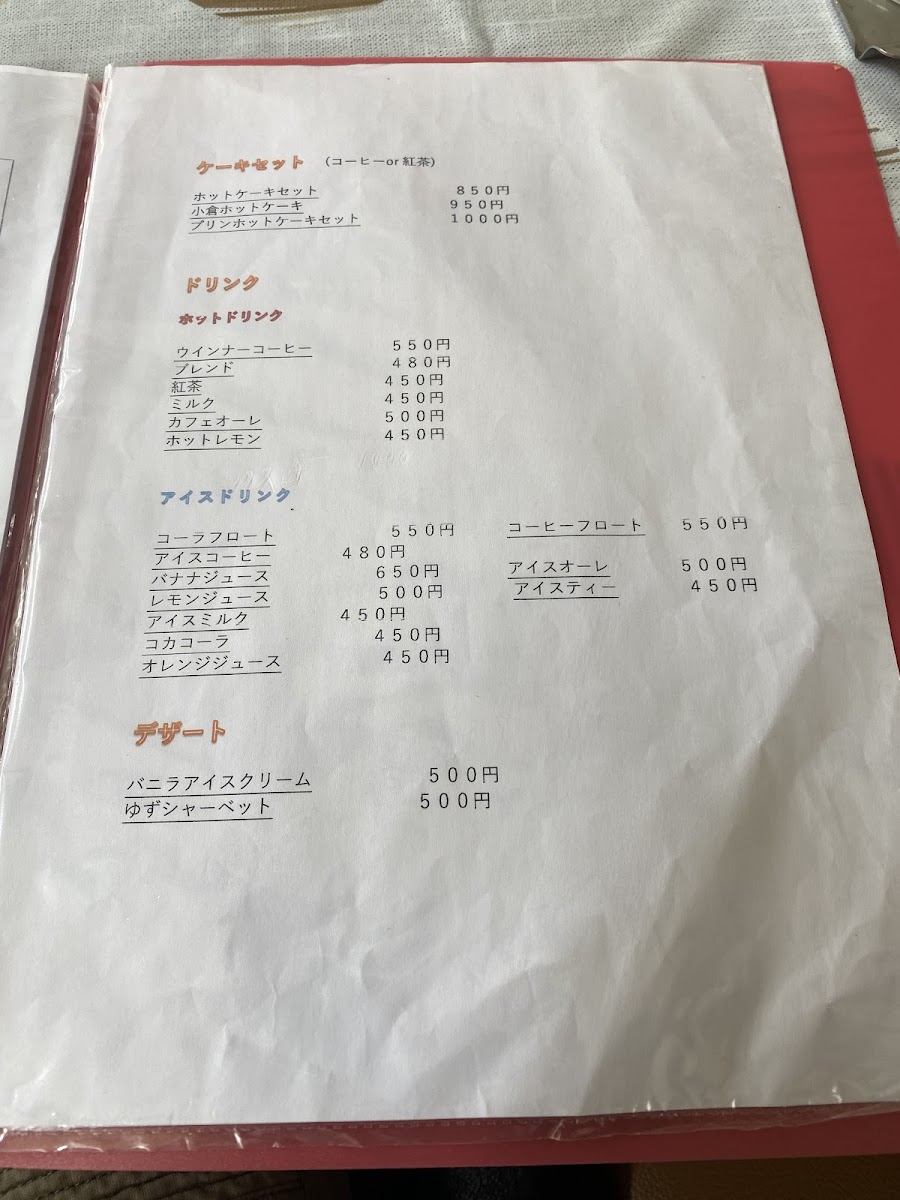 ケーキセット (コーヒーor 紅茶)
ホットケーキセット 850円
小倉ホットケーキ 950円
プリンホットケーキセット 1000円
ドリンク
ホットドリンク
ウインナーコーヒー 550円
ブレンド 480円
紅茶 450円
ミルク 450円
カフェオーレ 500円
ホットレモン 450円
アイスドリンク
コーラフロート 550円 コーヒーフロート 550円
アイスコーヒー 480円
バナナジュース 650円 アイスオーレ 500円
レモンジュース 500円 アイスティー 450円
アイスミルク 450円
コカコーラ 450円
オレンジジュース 450円
デザート
バニラアイスクリーム 500円
ゆずシャーベット 500円